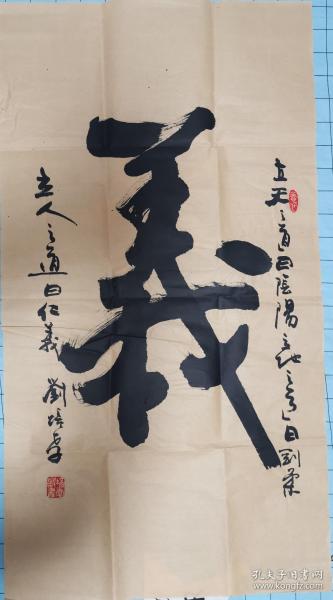 義
立天之道曰陰陽立地之道曰剛柔
立人之道曰仁義 劉培章
孔夫子旧书网
book.kongfz.com